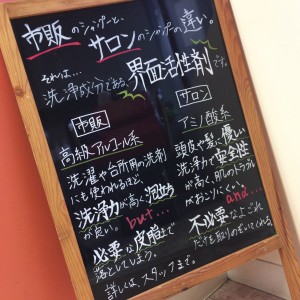 市販のシャンプーと、
サロンのシャンプーの違い。
それは…
洗浄成分である、界面活性剤です。
市販
高級アルコール系
洗濯や台所用の洗剤
にも使われるほど
洗浄力が高く泡立ち
が良い。
but…
必要な皮脂まで
落としてしまう。
サロン
アミノ酸系
頭皮や髪に優しい
洗浄力で安全性
が高く、肌のトラブル
がおこりにくい。
and…
不必要なよごれ
だけを取りのぞいてくれる。
詳しくは、スタッフまで。